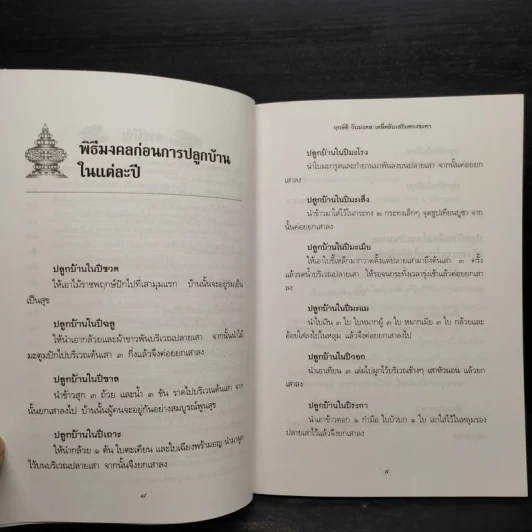 พิธีมงคลก่อนการปลูกบ้าน
ในแต่ละปี
ปลูกบ้านในปีชวด
ให้เอาไม้ราชพฤกษ์ปักไปที่เสามุมแรก บ้านนั้นจะอยู่ร่มเย็น
เป็นสุข
ปลูกบ้านในปีฉลู
ให้นำเอากล้วยและผ้าขาวพันบริเวณปลายเสา จากนั้นนำไม้
มะตูมปักไปบริเวณต้นเสา ๓ กิ่งแล้วจึงค่อยยกเสาลง
ปลูกบ้านในปีขาล
นำข้าวสุก ๓ ถ้วย และน้ำ ๓ ขัน ราดไปบริเวณต้นเสา จาก
นั้นยกเสาลงไป บ้านนั้นผู้คนจะอยู่กันอย่างสมบูรณ์พูนสุข
ปลูกบ้านในปีเถาะ
ให้นำกล้วย ๑ ต้น ใบตะเคียน และใบเฉียงพร้ามอญ นำมาผูก
ไว้บนบริเวณปลายเสา จากนั้นจึงยกเสาลง
๘
ฤกษ์ดี วันมงคล เคล็ดลับเสริมดวงชะตา
ปลูกบ้านในปีมะโรง
นำใบมะกรูดและกำยานมาพันลงบนปลายเสา จากนั้นค่อยยก
เสาลง
ปลูกบ้านในปีมะเส็ง
นำข้าวมาใส่ไว้ในกระทง ๒ กระทงเล็กๆ จุดธูปเทียนบูชา จาก
นั้นค่อยยกเสาลง
ปลูกบ้านในปีมะเมีย
ให้เอาใบขี้เหล็กมากวาดตั้งแต่ปลายเสามาถึงต้นเสา ๓ ครั้ง
แล้วรดน้ำบริเวณปลายเสา ให้รอจนกระทั่งเวลารุ่งเช้าแล้วค่อยยกเสา
ลง
ปลูกบ้านในปีมะแม
นำใบเงิน ๓ ใบ ใบหมากผู้ ๓ ใบ หมากเมีย ๓ ใบ กล้วยและ
อ้อยใส่ลงไปในหลุม แล้วจึงค่อยยกเสาลงไป
ปลูกบ้านในปีวอก
นำเอาเทียน ๓ เล่มไปผูกไว้บริเวณข้างๆ เสาหัวนอน แล้วยก
เสาลง
ปลูกบ้านในปีระกา
นำเอาข้าวตอก ๑ กำมือ ใบบัวบก ๑ ใบ เอาใส่ไว้ในหลุมรอง
ปลายเสาไว้แล้วจึงยกเสาลง
๙